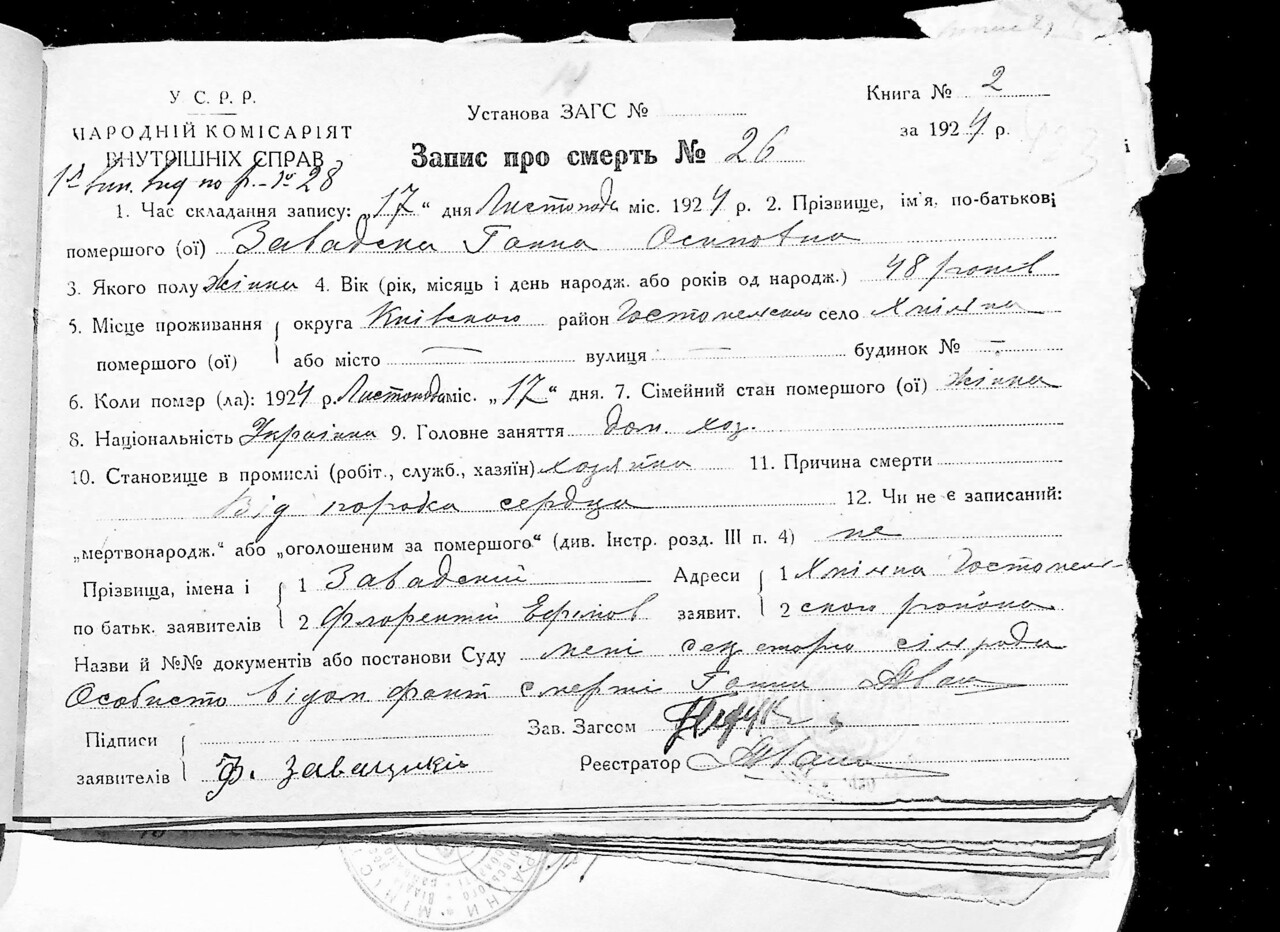 У. С. Р. Р.
НАРОДНІЙ КОМІСАРІЯТ
ВНУТРІШНІХ СПРАВ
Установа ЗАГС №
Книга № 2
за 1924 р.
Запис про смерть № 26
1. Час складання запису: „17“ дня Листопада міс. 1924 р. 2. Прізвище, ім'я, по-батькові
помершого (ої) Завадска Ганна Осиповна
3. Якого полу жінка 4. Вік (рік, місяць і день народж. або років од народж.) 48 років
5. Місце проживання помершого (ої) округа Київського район Гостомельского село Хмілна
або місто — вулиця — будинок № —
6. Коли помэр (ла): 1924 р. Листопада міс. „17“ дня. 7. Сімейний стан помершого (ої) жінка
8. Національність Українка 9. Головне заняття дом. хоз.
10. Становище в промислі (робіт., служб., хазяїн) хозяйка 11. Причина смерти
Від порока сердца 12. Чи не є записаний:
„мертвонародж.“ або „оголошеним за помершого“ (див. Інстр. розд. III п. 4) не
Прізвища, імена і по батьк. заявителів 1 Завадский Адреси заявит. 1 Хмілна Гостомель-
2 Флорентій Ефимов 2 ского района
Назви й №№ документів або постанови Суду мені секторю сілради
Особисто відом факт смерті Ганни
Підписи заявителів Ф. Завацкий
Зав. Загсом
Реєстратор